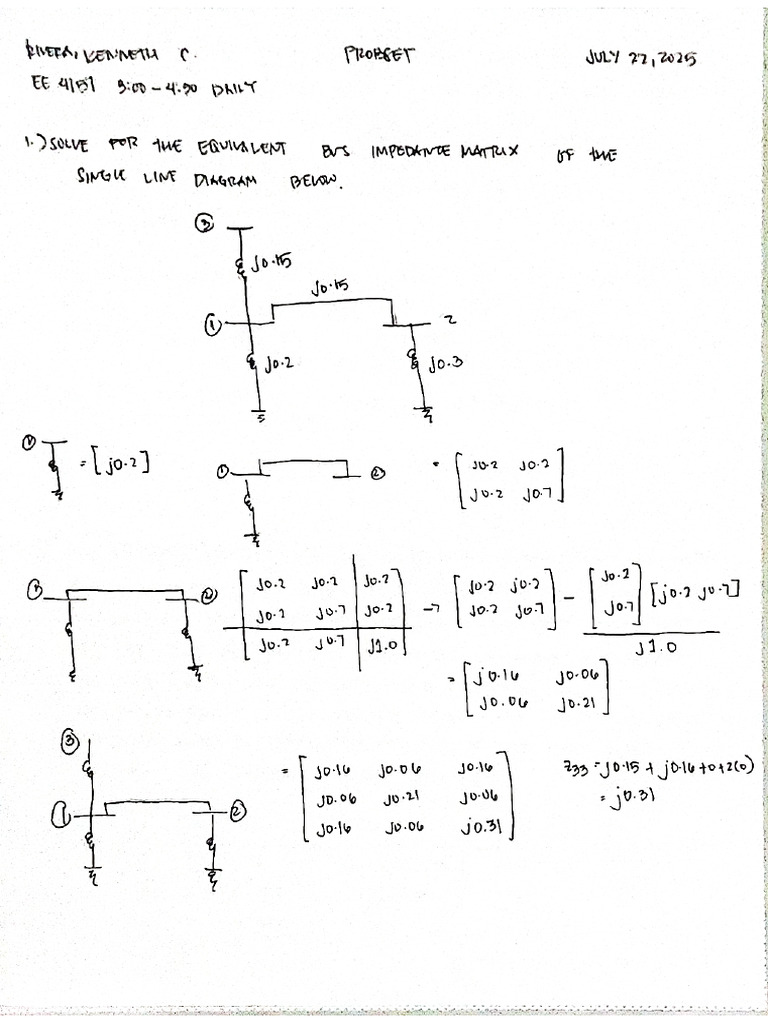 RIVERA, KENNETH C. PROBSET JULY 22, 2025
EE 4151 3:00 - 4:30 DAILY
1.) SOLVE FOR THE EQUIVALENT BUS IMPEDANCE MATRIX OF THE
SINGLE LINE DIAGRAM BELOW.
③
j0.15
j0.15
① 2
j0.2 j0.3
① = [j0.2] ① ② = [j0.2 j0.2
j0.2 j0.7]
① ② [j0.2 j0.2 | j0.2
j0.2 j0.7 | j0.2
j0.2 j0.7 | j1.0] → [j0.2 j0.2
j0.2 j0.7] - [j0.2
j0.7] [j0.2 j0.7]
j1.0
= [j0.16 j0.06
j0.06 j0.21]
③
① ②
= [j0.16 j0.06 j0.16
j0.06 j0.21 j0.06
j0.16 j0.06 j0.31]
Z33 = j0.15 + j0.16 + 0 + 2(0)
= j0.31